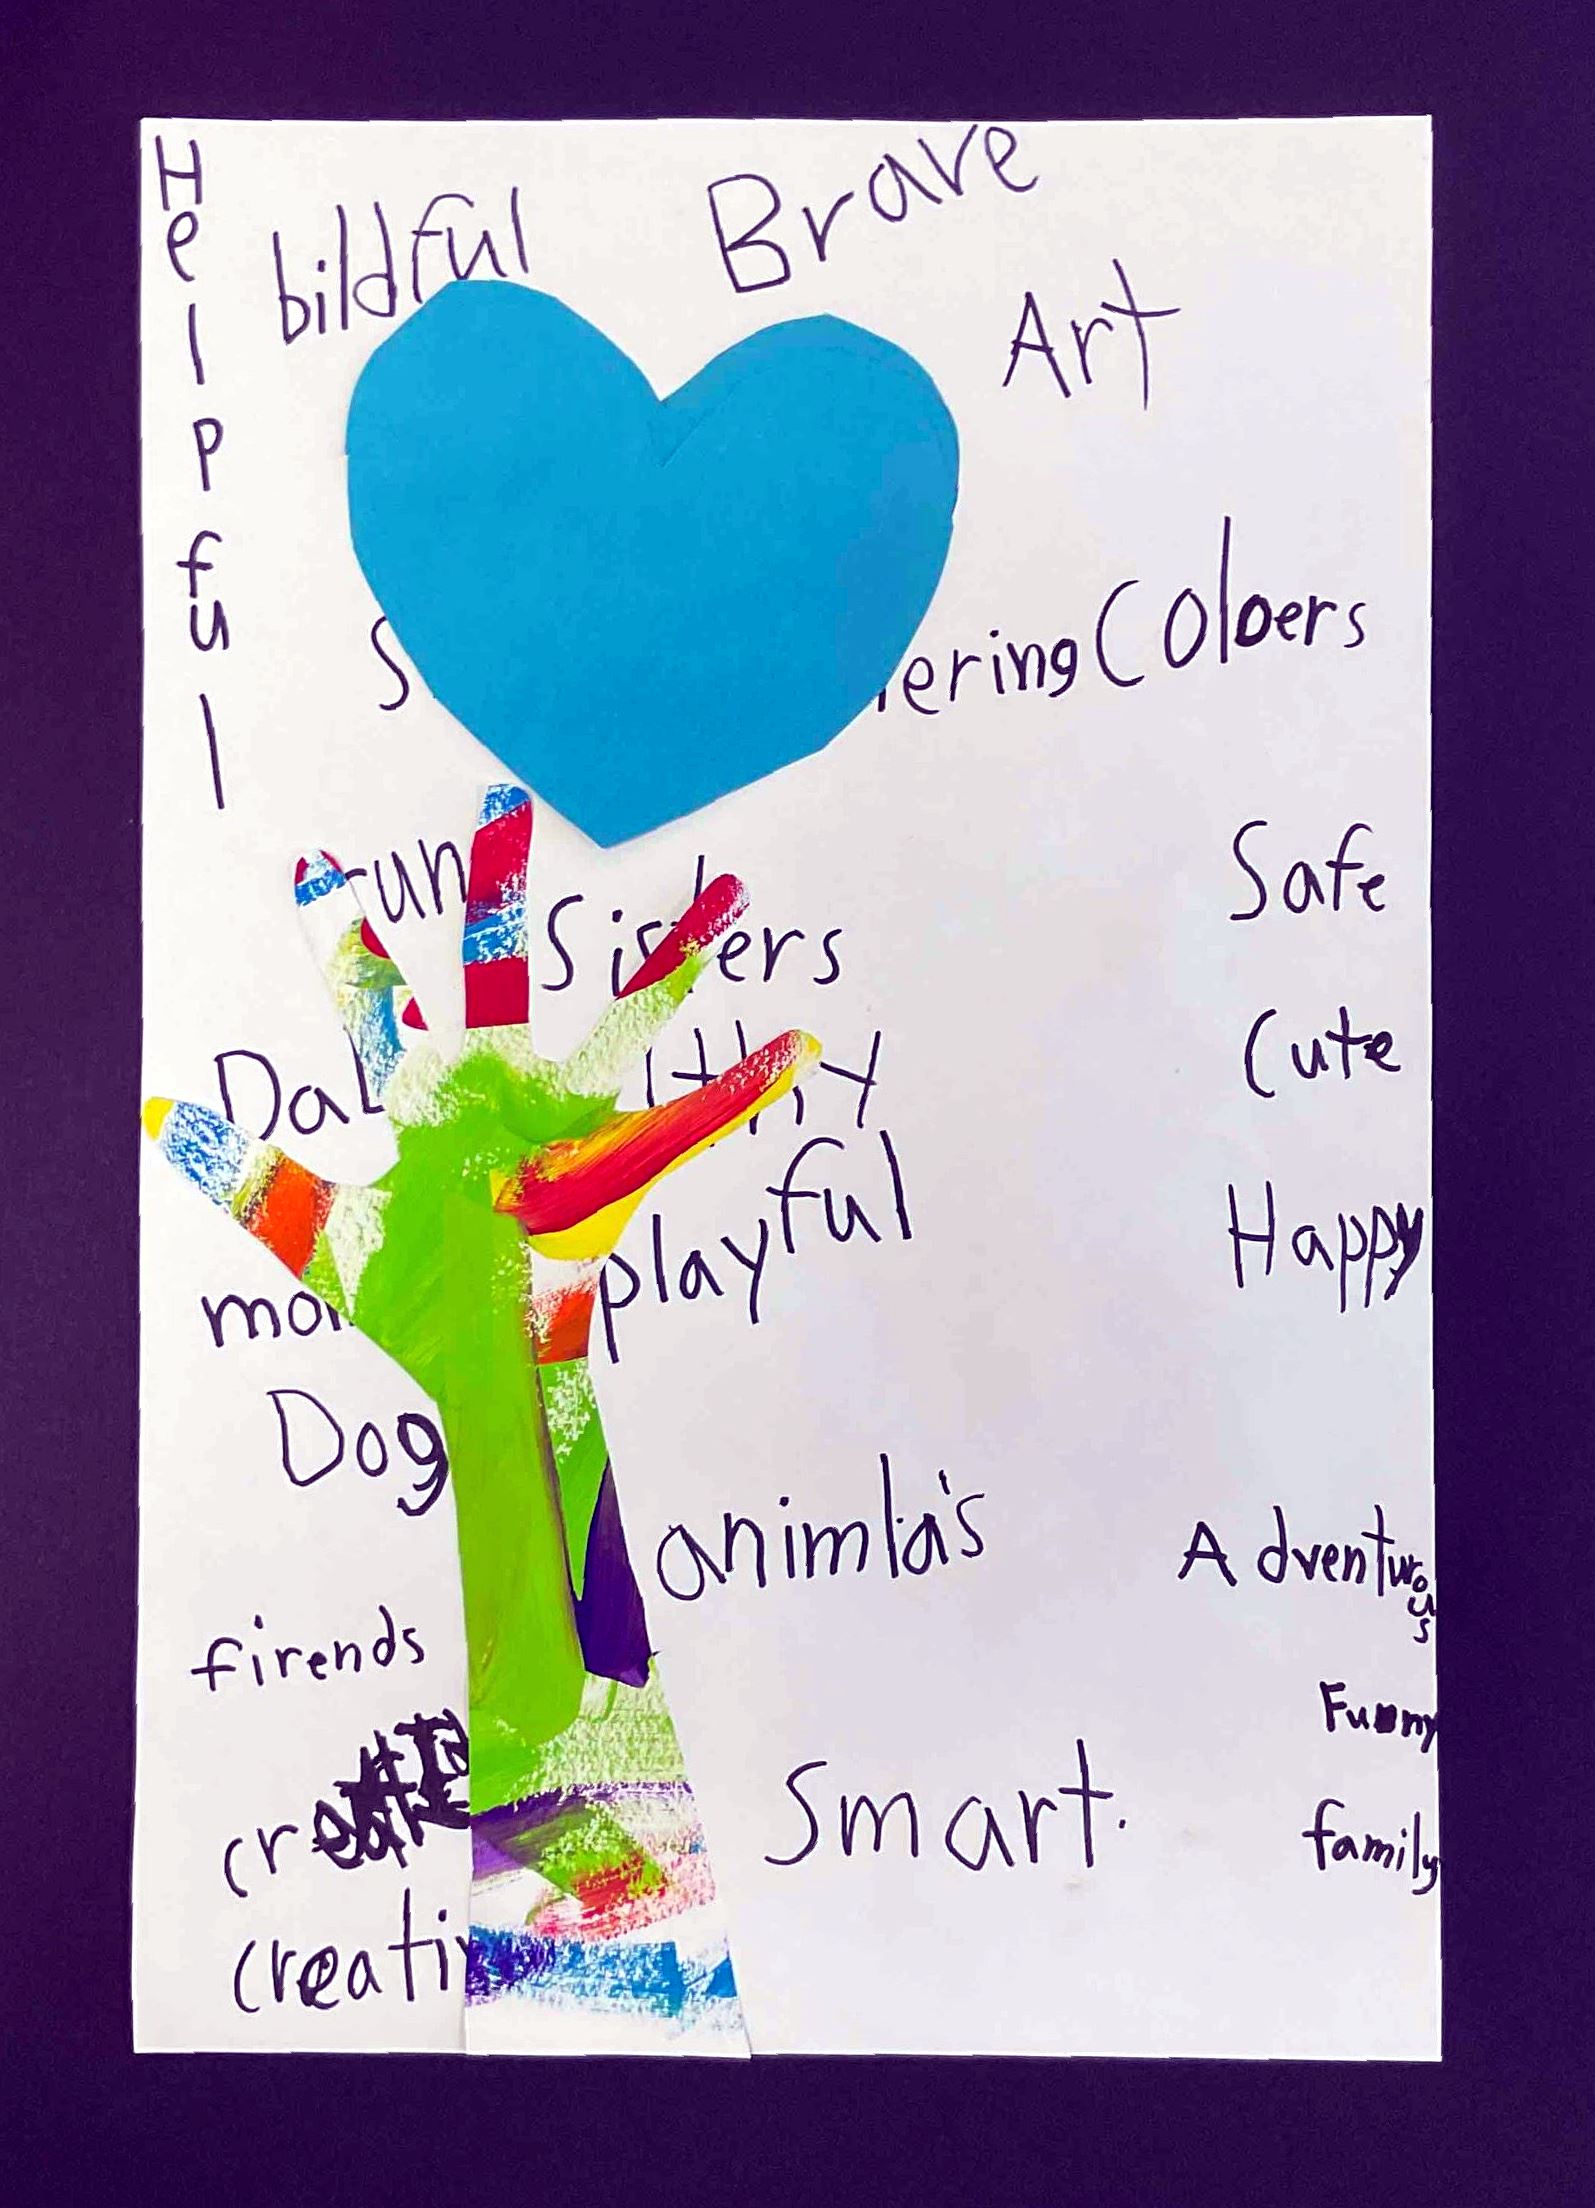 Helpful
bildful
Brave
Art
ering Coloers
run
Sisters
Safe
Cute
Happy
playful
Dog
animla's
Adventurous
firends
Funny
Smart.
family
creati